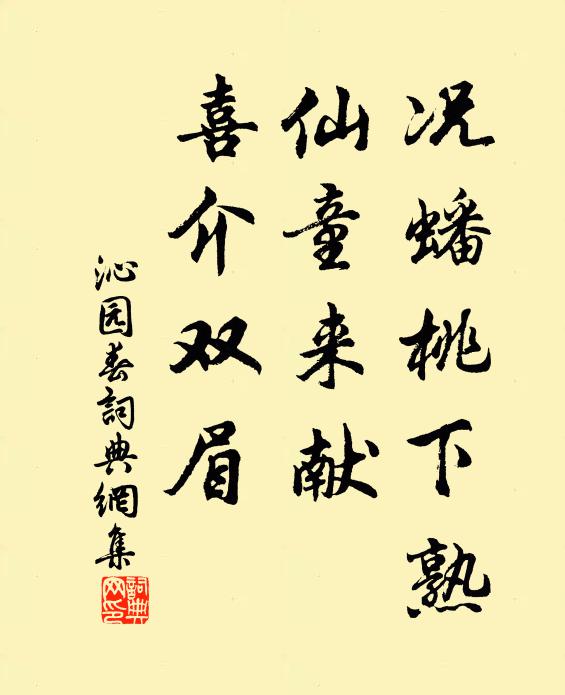 况蟠桃下熟
仙童来献
喜介双眉
沁园春詞典網集
詞典
网印